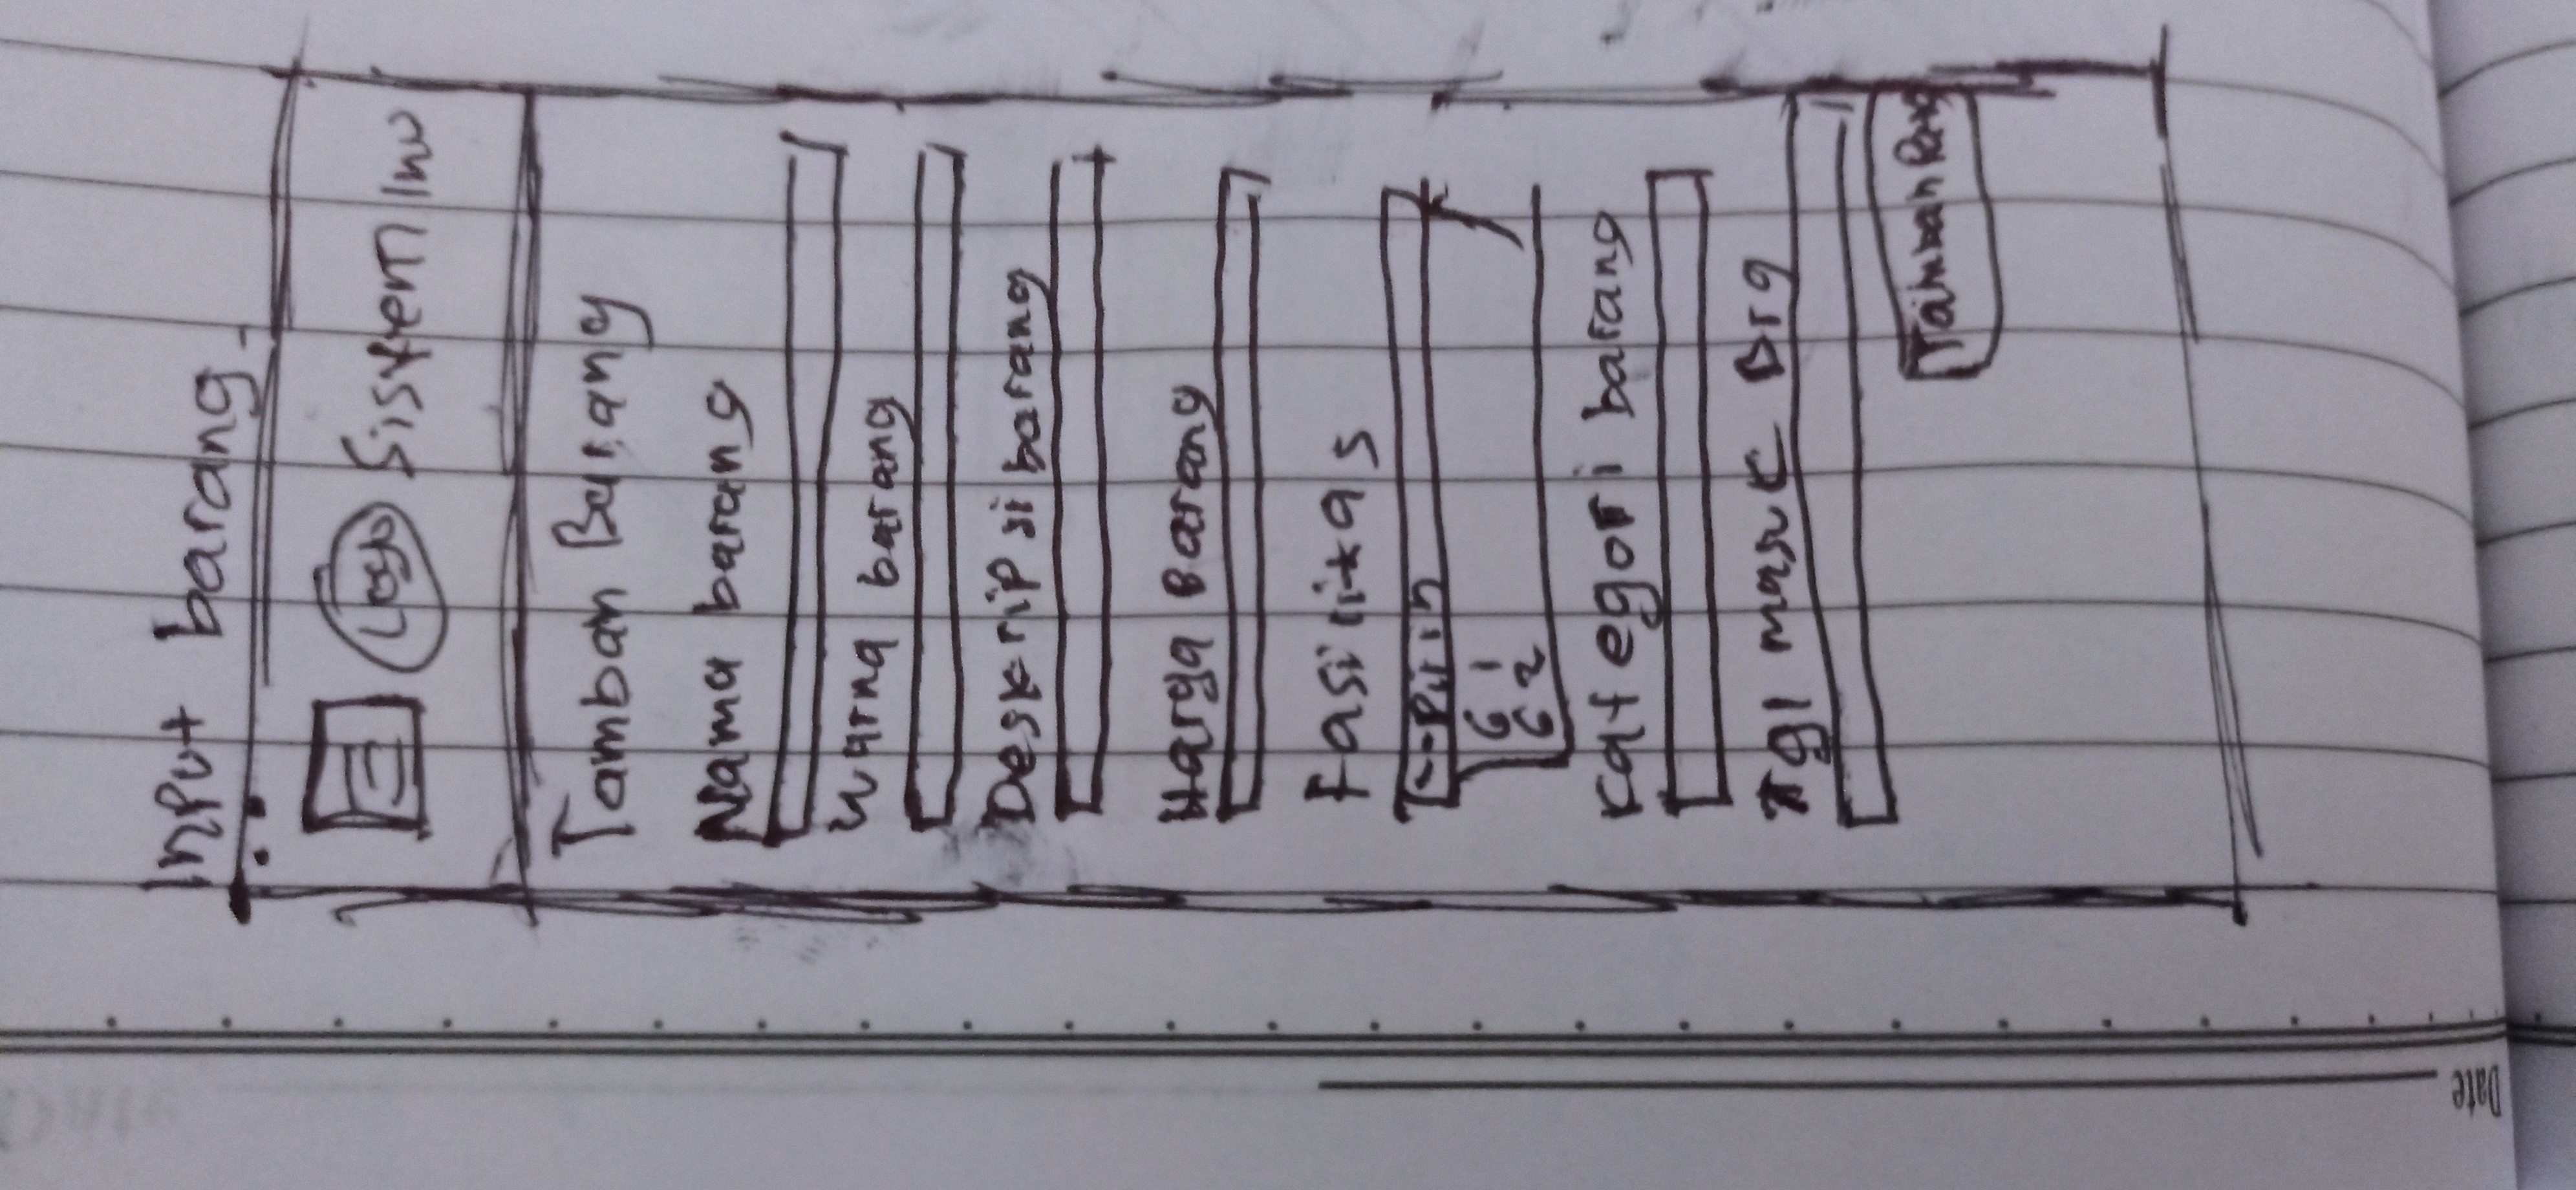 Input barang
Logo Sistem Inv
Tambah Barang
Nama barang
Warna barang
Deskripsi barang
Harga Barang
Fasilitas
--Pilih
G 1
G 2
Kategori barang
Tgl masuk Brg
Tambah
Date